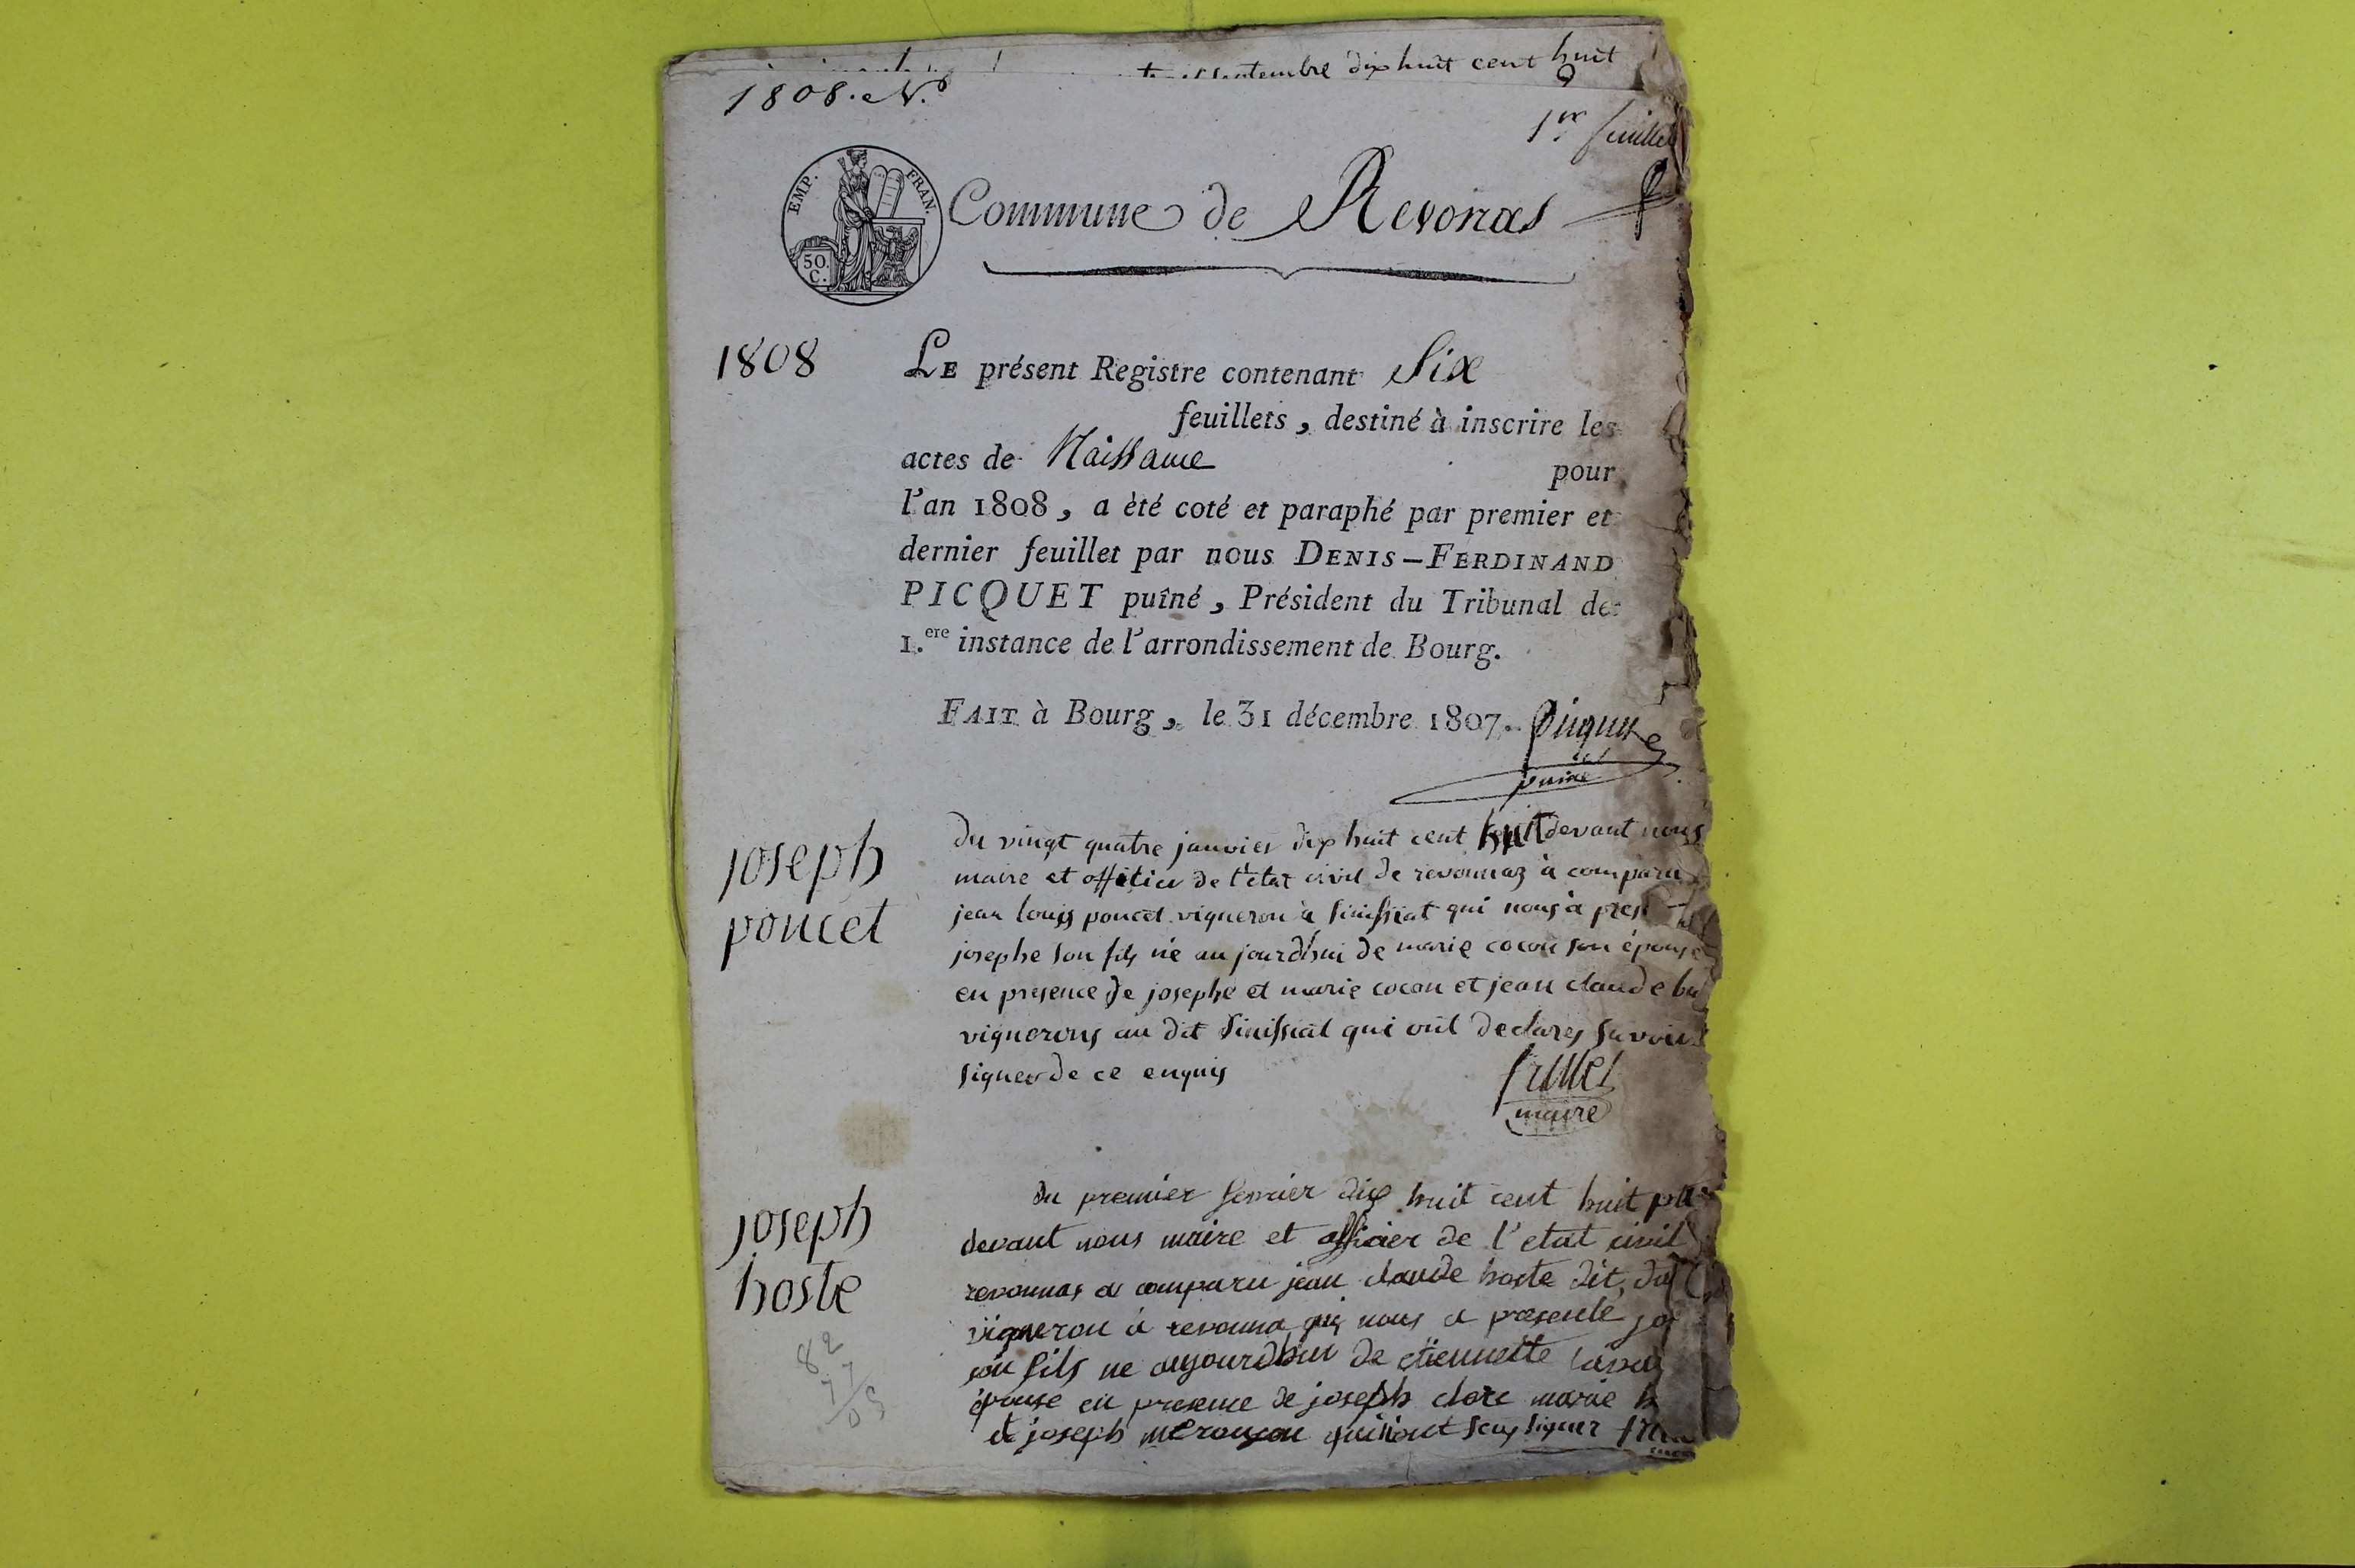 septembre dix huit cent huit
1808. N.°
1er feuillet
EMP. FRAN.
50. C.
Commune de Revonas
1808
LE présent Registre contenant Six
feuillets, destiné à inscrire les
actes de Naissance pour
l'an 1808, a été coté et paraphé par premier et
dernier feuillet par nous DENIS-FERDINAND
PICQUET puîné, Président du Tribunal de
1.ere instance de l'arrondissement de Bourg.
FAIT à Bourg, le 31 décembre 1807.. Picquet
puiné
joseph
poncet
Du vingt quatre janvier dix huit cent huit devant nous
maire et officier de l'état civil de revonnaz à comparu
jean louis poncet vigneron à Sinissiat qui nous à
josephe son fils né au jourdhui de marie cocon son épouse
en presence de josephe et marie cocon et jean claude
vignerons au dit Sinissiat qui ont declares savoir
signer de ce enquis
maire
joseph
hoste
du premier fevrier dix huit cent huit par
devant nous maire et officier de l'etat civil
revonnas a comparu jean claude hoste dit
vigneron à revonna qui nous a presente
son fils ne aujourdhui de etiennette
épouse en presence de joseph clerc marie
et joseph qui nont sçu signer
82
77